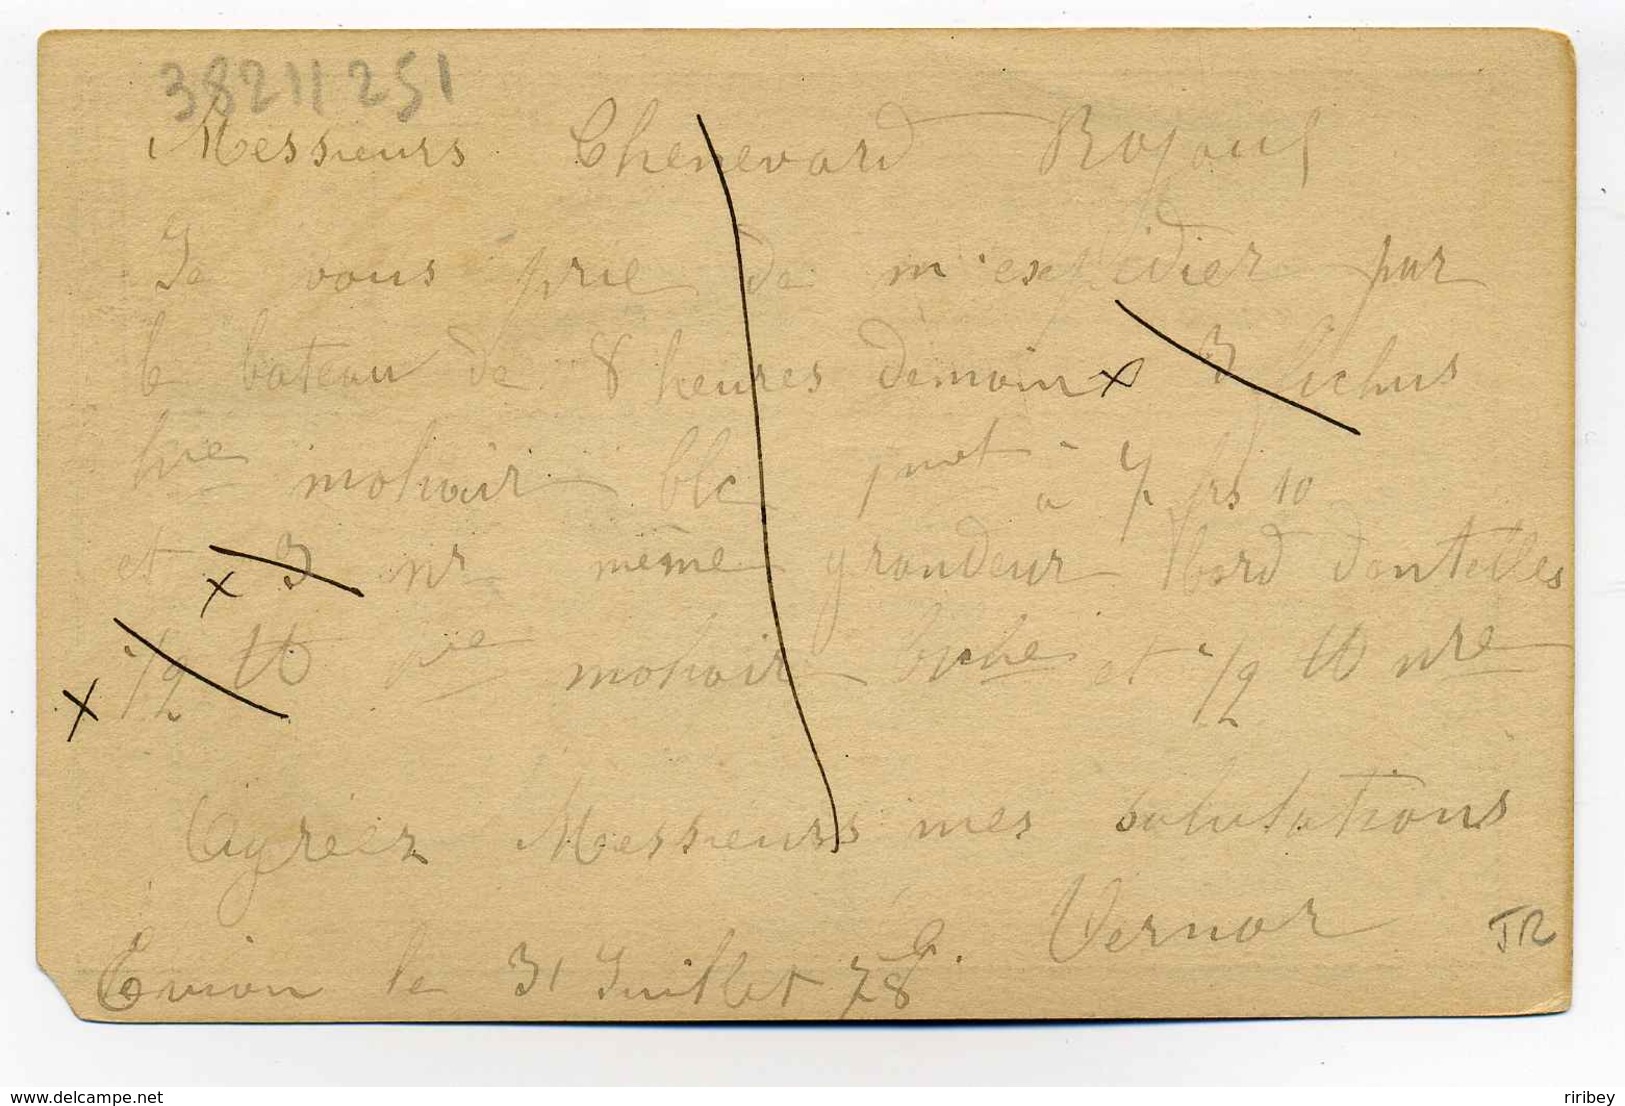 38211251
Messieurs Chenevard
Je vous prie de m'expédier par
le bateau de 8 heures demain 3 fichus
hre mohair blc à 7 frs 10
et 3 nr même grandeur bord dentelles
1/2 tt mohair et 1/2 tt nre
Agréez Messieurs mes salutations
Evian le 31 Juillet 78 G. Vernar
JR
www.delcampe.net
ribibey